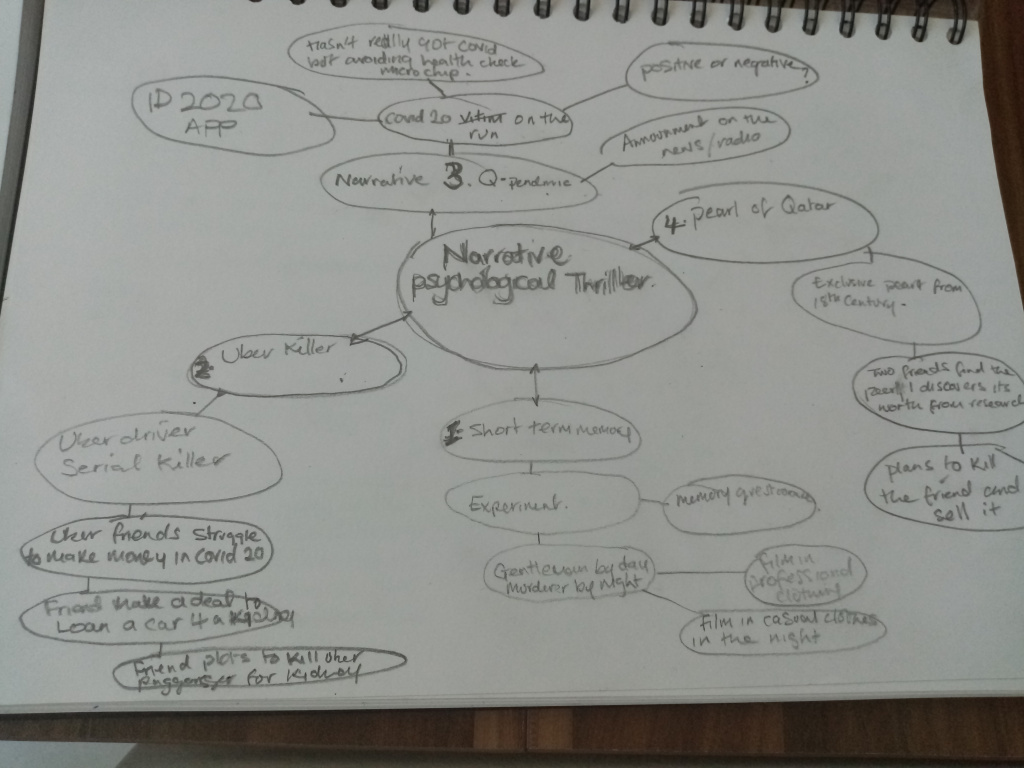 Hasn't really got covid
but avoiding health check
macro chip.
positive or negative?
ID 2020
APP
Covid 20 on the
run
Announment on the
news/radio
Narrative 3. Q-pendamic
4. pearl of Qatar
Narrative
psychological Thriller.
Exclusive pearl from
18th Century.
2 Uber Killer
Two friends find the
pearl, 1 discovers its
worth from research
1 Short term memory
Uber driver
Serial Killer
plans to kill
the friend and
sell it
Experiment.
memory questions
Uber friends struggle
to make money in Covid 20
Gentleman by day
murderer by night
Film in
professional
clothing
Friend make a deal to
Loan a car 4 a Kidney
Film in casual clothes
in the night
Friend plots to kill other
for Kidney